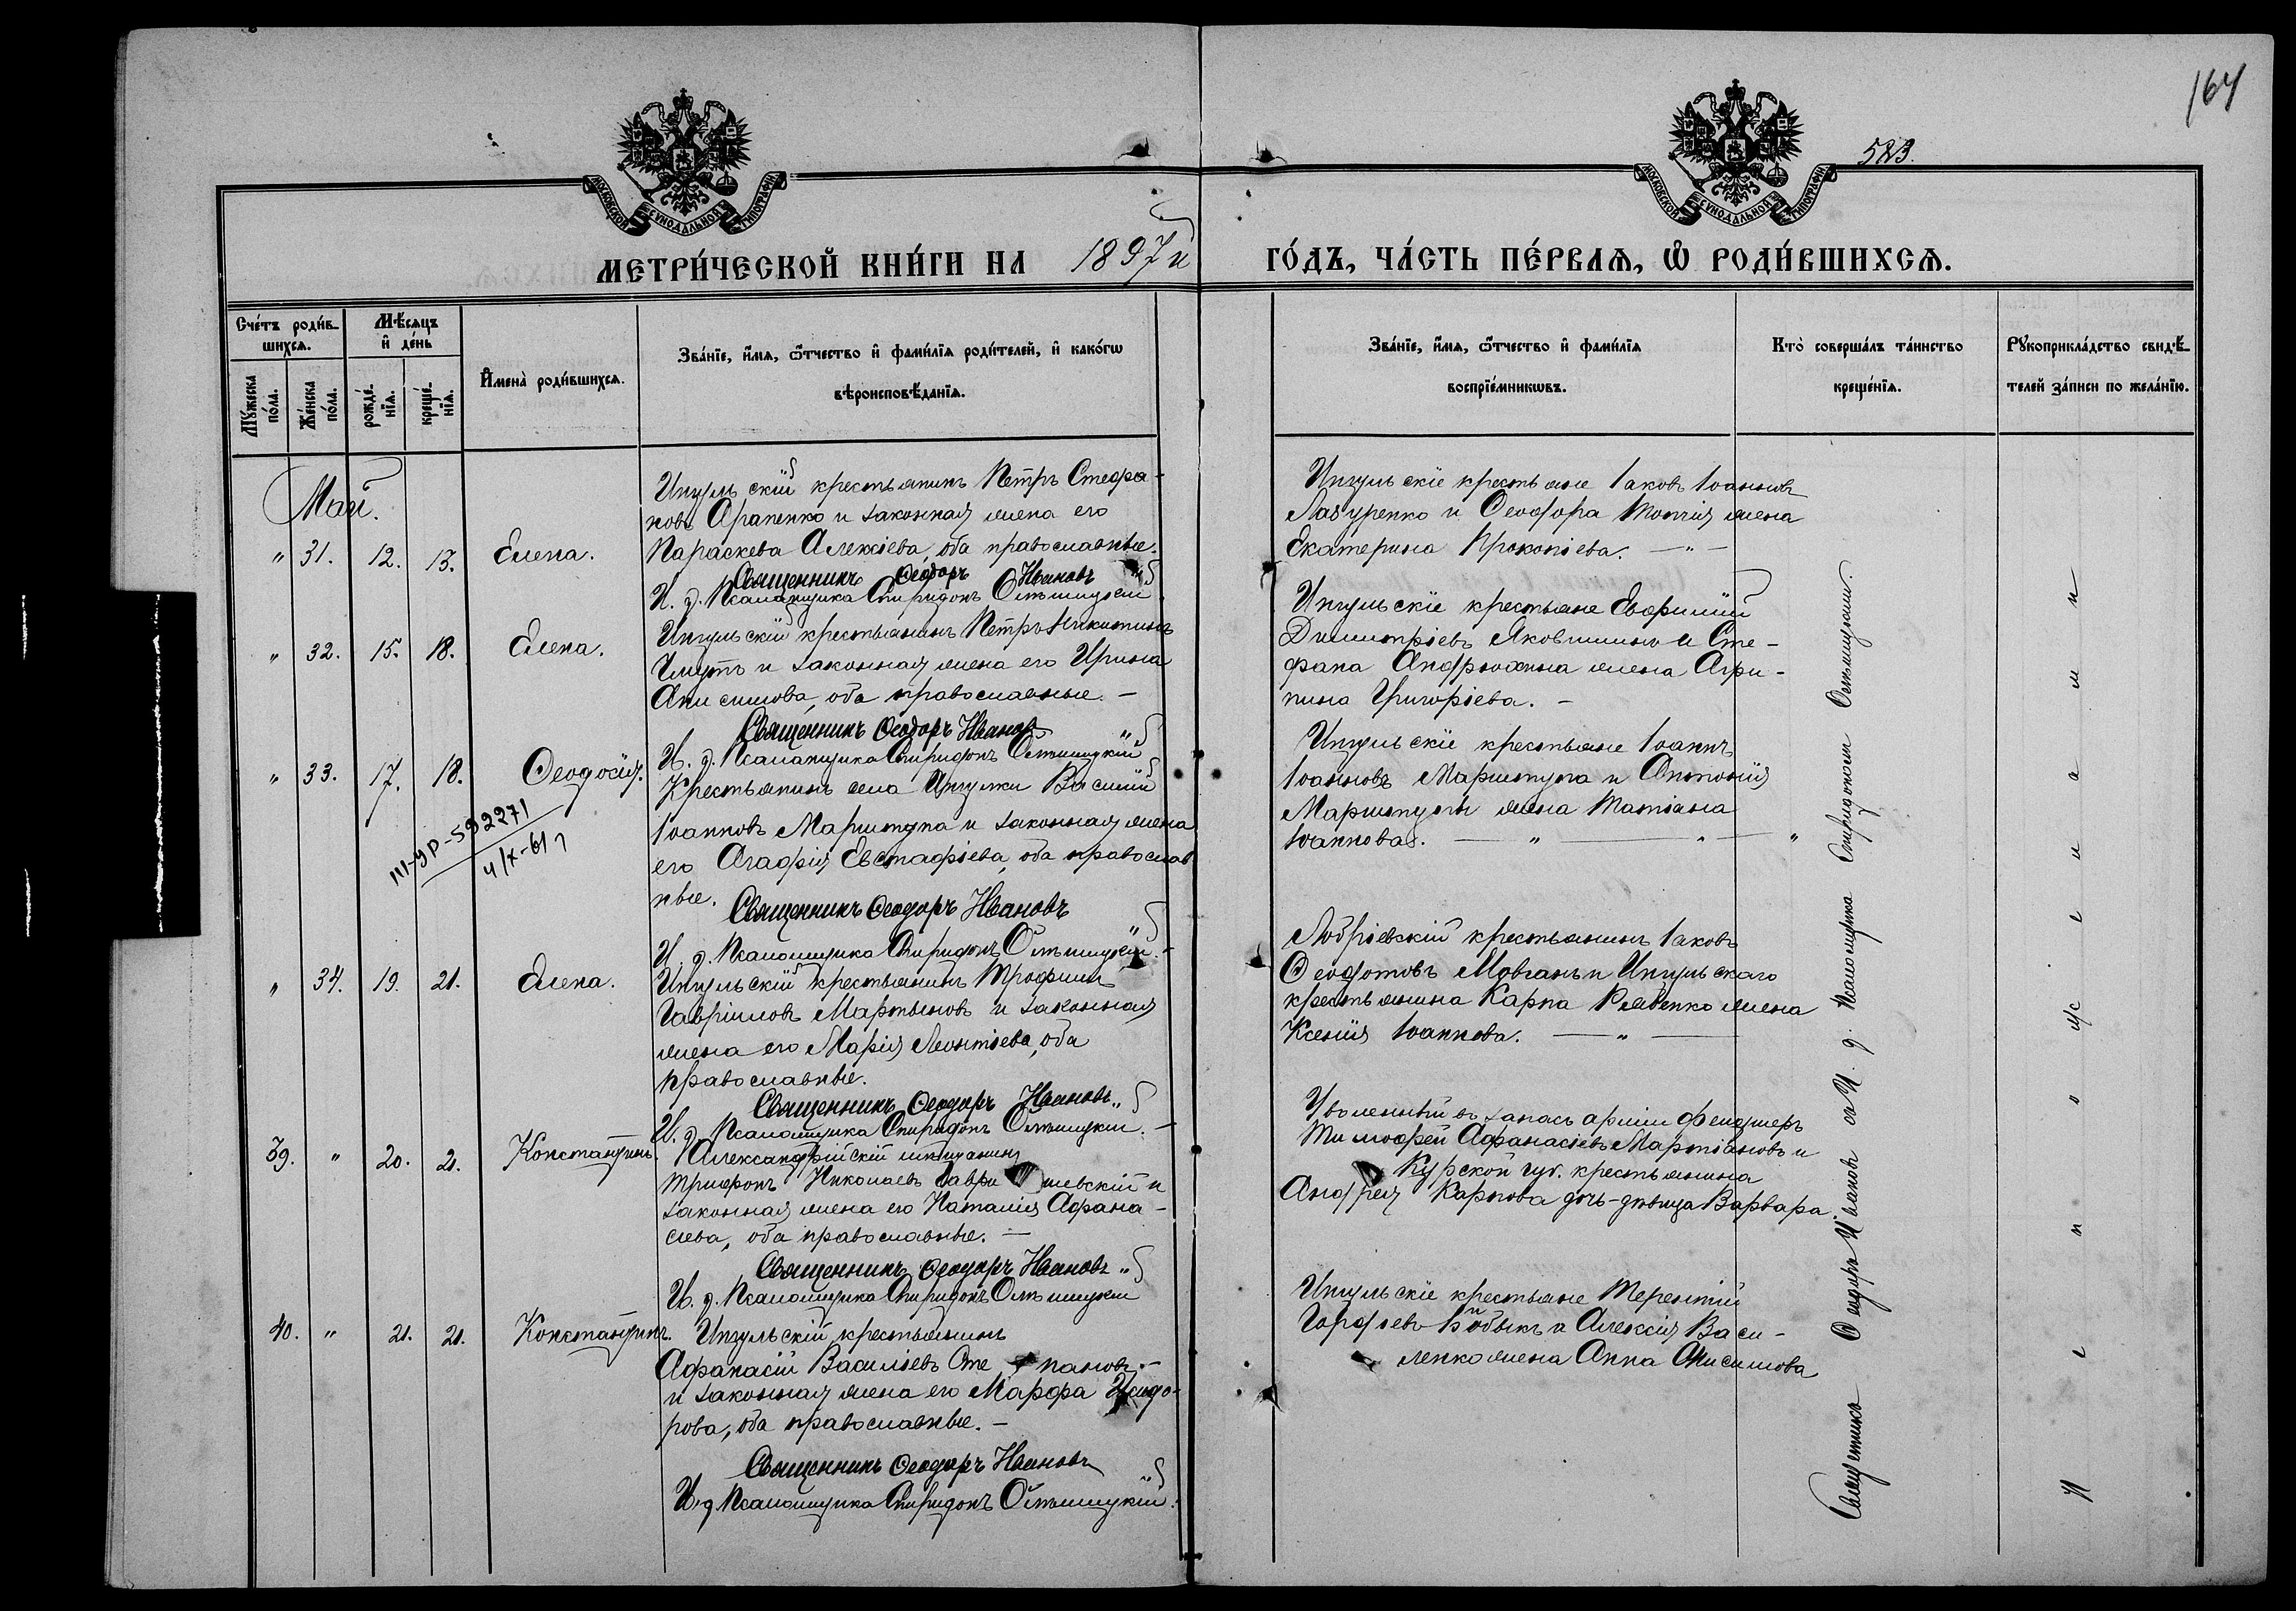 164
583.
МОСКОВСКОЙ СѴНОДАЛЬНОЙ ТИПОГРАФІИ
МОСКОВСКОЙ СѴНОДАЛЬНОЙ ТИПОГРАФІИ
МЕТРИ́ЧЕСКОЙ КНИ́ГИ НА 1897й ГО́ДЪ, ЧА́СТЬ ПЕ́РВАѦ, Ѡ҆ РОДИ́ВШИХСѦ.
Сче́тъ роди́в-
шихсѧ.
Мꙋ́жеска по́ла.
Же́нска по́ла.
Мѣ́сѧцъ
и҆ де́нь
рожде́-
нїѧ.
креще́-
нїѧ.
И҆мена̀ роди́вшихсѧ.
Зва́нїе, и҆́мѧ, ѻ҆́тчество и҆ фами́лїѧ роди́телей, и҆ како́гѡ
вѣроисповѣ́данїѧ.
Зва́нїе, и҆́мѧ, ѻ҆́тчество и҆ фами́лїѧ
воспрїе́мникѡвъ.
Кто̀ соверша́лъ та́инство
креще́нїѧ.
Рꙋкоприкла́дство свидѣ́-
телей за́писи по жела́нїю.
Май.
" 31. 12. 13. Елена.
Ингульскій крестьянинъ Петръ Стефа-
новъ Арапенко и законная жена его
Параскева Алексіева, оба православные.
Священникъ Ѳеодоръ Ивановъ
И. д. Псаломщика Спиридонъ Ольшицкій
Ингульскіе крестьяне Іаковъ Іоанновъ
Лазуренко и Ѳеодора жена
Екатерина Прокопіева. — " —
" 32. 15. 18. Елена.
Ингульскій крестьянинъ Петръ Никитинъ
и законная жена его Ирина
Анисимова, оба православные. —
Священникъ Ѳеодоръ Ивановъ
И. д. Псаломщика Спиридонъ Ольшицкій
Ингульскіе крестьяне Евфимій
Димитріевъ и Сте-
фана Андрюхина жена Агри-
пина Григоріева. —
" 33. 17. 18. Ѳеодосія.
III-УР-592271
4/X-61 г
Крестьянинъ села Ингулки Василій
Іоанновъ Марштупа и законная жена
его Агафія Евстафіева, оба православ
ные. Священникъ Ѳеодоръ Ивановъ
И. д. Псаломщика Спиридонъ Ольшицкій. —
Ингульскіе крестьяне Іоаннъ
Іоанновъ Марштупа и Антонія
Марштупы жена Татіана
Іоаннова. — " — " — "
" 34. 19. 21. Елена.
Ингульскій крестьянинъ Трофимъ
Гавріиловъ Мартыновъ и законная
жена его Марія Леонтіева, оба
православные.
Священникъ Ѳеодоръ Ивановъ "
И. д. Псаломщика Спиридонъ Ольшицкій. —
крестьянинъ Іаковъ
Ѳеофотовъ Мовганъ и Ингульскаго
крестьянина Карпа Рябенко жена
Ксенія Іоаннова. — " —
39. " 20. 21. Константинъ.
Александрійскій мѣщанинъ
Трифонъ Николаевъ и
законная жена его Наталія Афана-
сіева, оба православные. —
Священникъ Ѳеодоръ Ивановъ "
И. д. Псаломщика Спиридонъ Ольшицкій
Уволенный въ запасъ арміи фельдшеръ
Тимофей Афанасіевъ Мартіановъ и
Курской губ. крестьянина
Андрея Карпова дочь-дѣвица Варвара.
40. " 21. 21. Константинъ.
Ингульскій крестьянинъ
Афанасій Василіевъ Сте пановъ —
и законная жена его Марфа Исидо-
рова, оба православные. —
Священникъ Ѳеодоръ Ивановъ
И. д. Псаломщика Спиридонъ Ольшицкій.
Ингульскіе крестьяне Терентій
Гордѣевъ Бобыкъ и Алексія Васи-
ленко жена Анна Анисимова
Священникъ Ѳеодоръ Ивановъ съ И. д. Псаломщика Спиридономъ Ольшицкимъ.